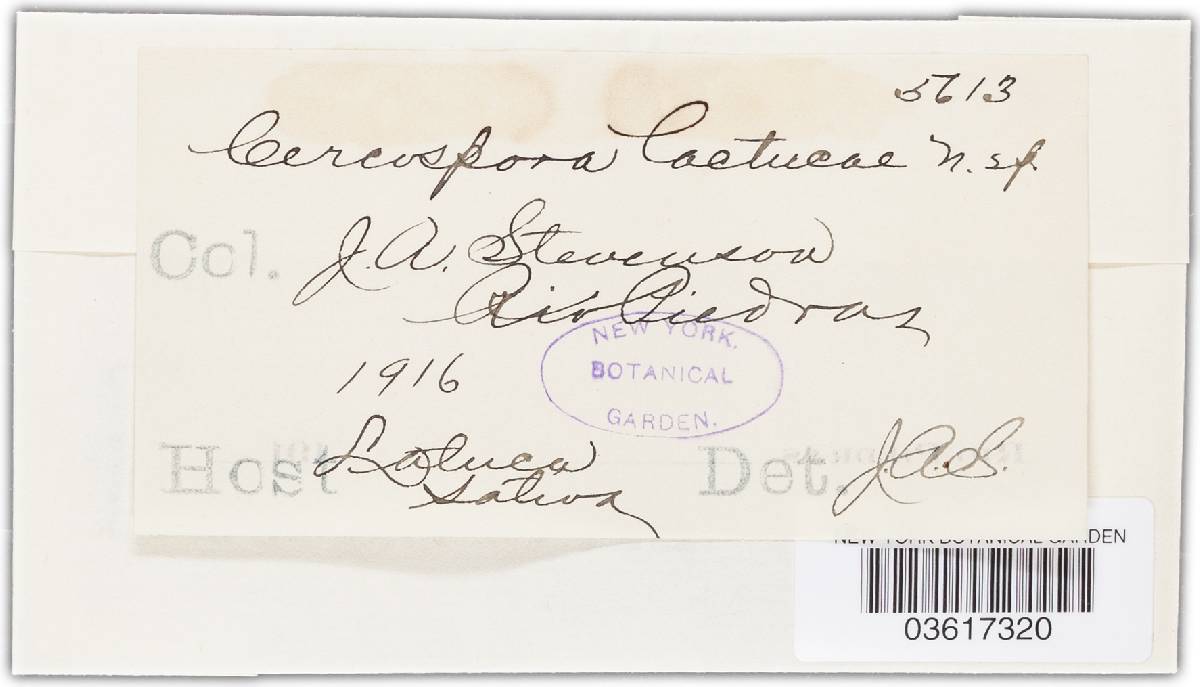 5613
Cercospora Lactucae n. sp.
Col. J. A. Stevenson
Rio Piedras
1916
NEW YORK
BOTANICAL
GARDEN.
Host Latuca
sativa
Det. J.A.S.
NEW YORK BOTANICAL GARDEN
03617320